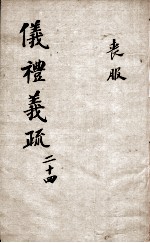 喪服
儀禮義疏 二十四